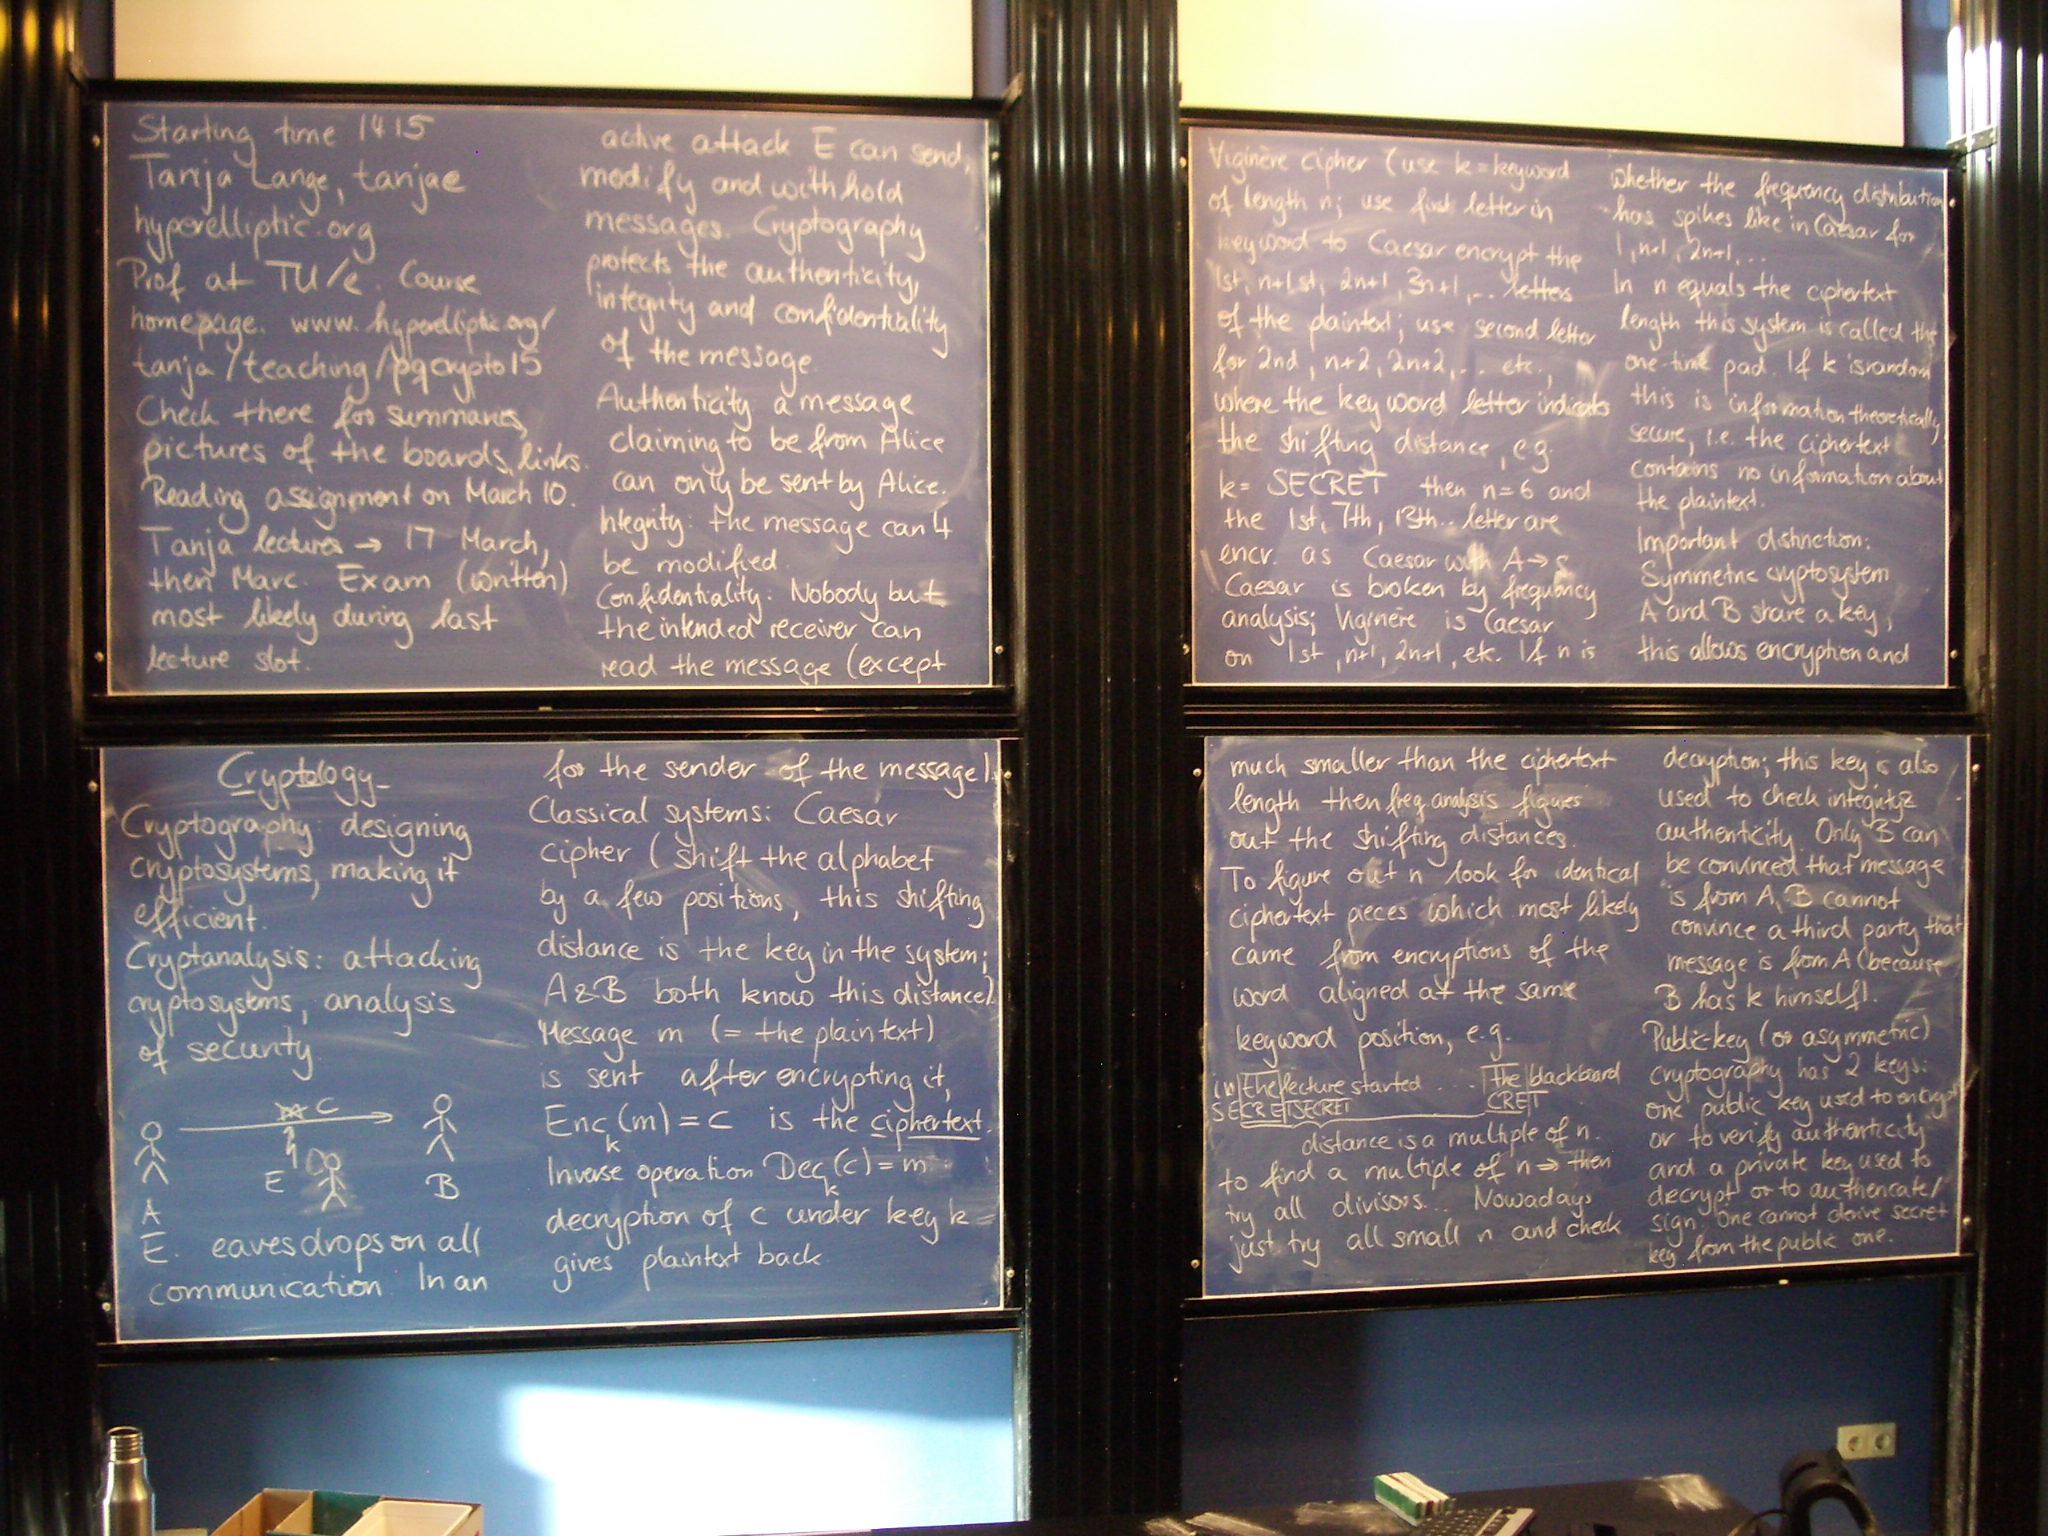 Starting time 1415
Tanja Lange, tanja@
hyperelliptic.org
Prof at TU/e. Course
homepage: www.hyperelliptic.org/
tanja/teaching/pqcrypto15
Check there for summaries,
pictures of the boards, links.
Reading assignment on March 10.
Tanja lectures → 17 March,
then Marc. Exam (written)
most likely during last
lecture slot.
active attack E can send,
modify and withhold
messages. Cryptography
protects the authenticity,
integrity and confidentiality
of the message.
Authenticity: a message
claiming to be from Alice
can only be sent by Alice.
Integrity: the message can 4
be modified.
Confidentiality: Nobody but
the intended receiver can
read the message (except
Cryptology
Cryptography: designing
cryptosystems, making it
efficient.
Cryptanalysis: attacking
cryptosystems, analysis
of security.
C
E
B
A
E. eavesdrops on all
communication. In an
for the sender of the message).
Classical systems: Caesar
cipher (shift the alphabet
by a few positions, this shifting
distance is the key in the system;
A&B both know this distance)
Message m (= the plaintext)
is sent after encrypting it,
Enc_k(m) = c is the ciphertext.
Inverse operation Dec_k(c) = m
decryption of c under key k
gives plaintext back.
Viginère cipher (use k = keyword
of length n; use first letter in
keyword to Caesar encrypt the
1st, n+1st, 2n+1, 3n+1, ... letters
of the plaintext; use second letter
for 2nd, n+2, 2n+2, ... etc.,
where the keyword letter indicates
the shifting distance, e.g.
k = SECRET then n=6 and
the 1st, 7th, 13th... letter are
encr. as Caesar with A → S
Caesar is broken by frequency
analysis; Viginère is Caesar
on 1st, n+1, 2n+1, etc. If n is
whether the frequency distribution
has spikes like in Caesar for
1, n+1, 2n+1, ...
In n equals the ciphertext
length this system is called the
one-time pad. If k is random
this is information theoretically
secure, i.e. the ciphertext
contains no information about
the plaintext.
Important distinction:
Symmetric cryptosystem
A and B share a key,
this allows encryption and
much smaller than the ciphertext
length then freq. analysis figures
out the shifting distances.
To figure out n look for identical
ciphertext pieces which most likely
came from encryptions of the
word aligned at the same
keyword position, e.g.
in the lecture started ... the blackboard
SECRETSECRET CRET
distance is a multiple of n.
to find a multiple of n ⇒ then
try all divisors... Nowadays
just try all small n and check
decryption; this key is also
used to check integrity &
authenticity. Only B can
be convinced that message
is from A, B cannot
convince a third party that
message is from A (because
B has k himself).
Public-key (or asymmetric)
cryptography has 2 keys:
one public key used to encrypt
or to verify authenticity
and a private key used to
decrypt or to authencate/
sign. One cannot derive secret
key from the public one.